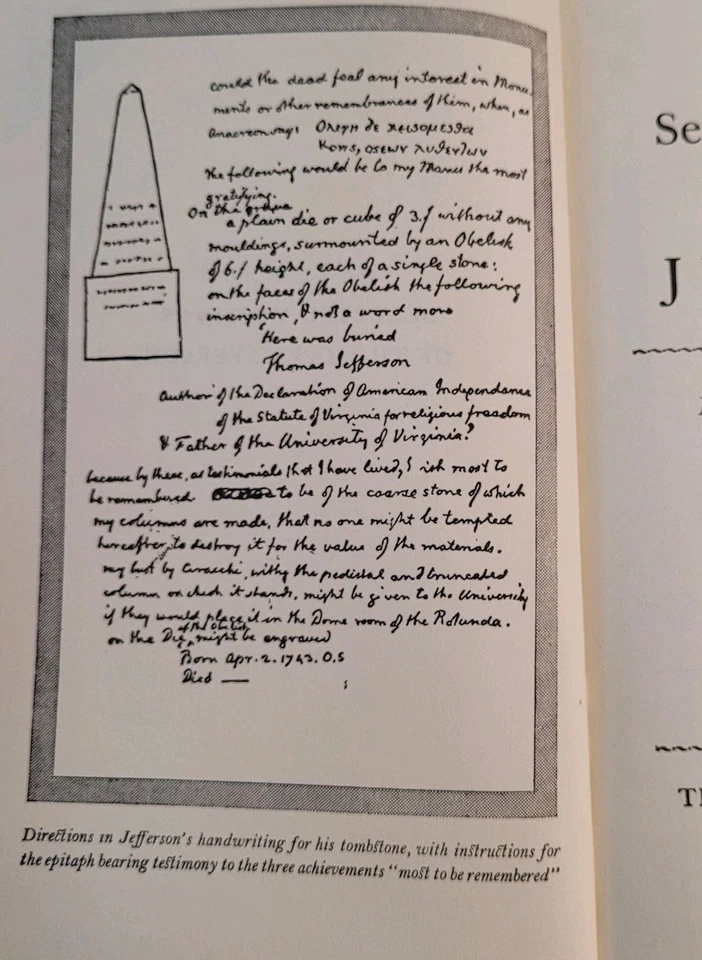 could the dead feel any interest in Monu-
ments or other remembrances of them, when, as
Anacreon says Ολιγη δε κεισομεσθα
Κονις, οστεων λυθεντων
the following would be to my Manes the most
gratifying.
On the grave
a plain die or cube of 3.f without any
mouldings, surmounted by an Obelisk
of 6.f height, each of a single stone:
on the faces of the Obelisk the following
inscription, & not a word more
'Here was buried
Thomas Jefferson
Author of the Declaration of American Independance
of the Statute of Virginia for religious freedom
& Father of the University of Virginia.'
because by these, as testimonials that I have lived, I ish most to
be remembered to be of the coarse stone of which
my columns are made, that no one might be tempted
hereafter to destroy it for the value of the materials.
my bust by Ciracchi, with the pedistal and truncated
column on which it stands, might be given to the University
if they would place it in the Dome room of the Rotunda.
of the Obelisk
on the Die, might be engraved
Born Apr. 2. 1743. O.S
Died —
Directions in Jefferson's handwriting for his tombstone, with instructions for
the epitaph bearing testimony to the three achievements "most to be remembered"
Se
J
TH